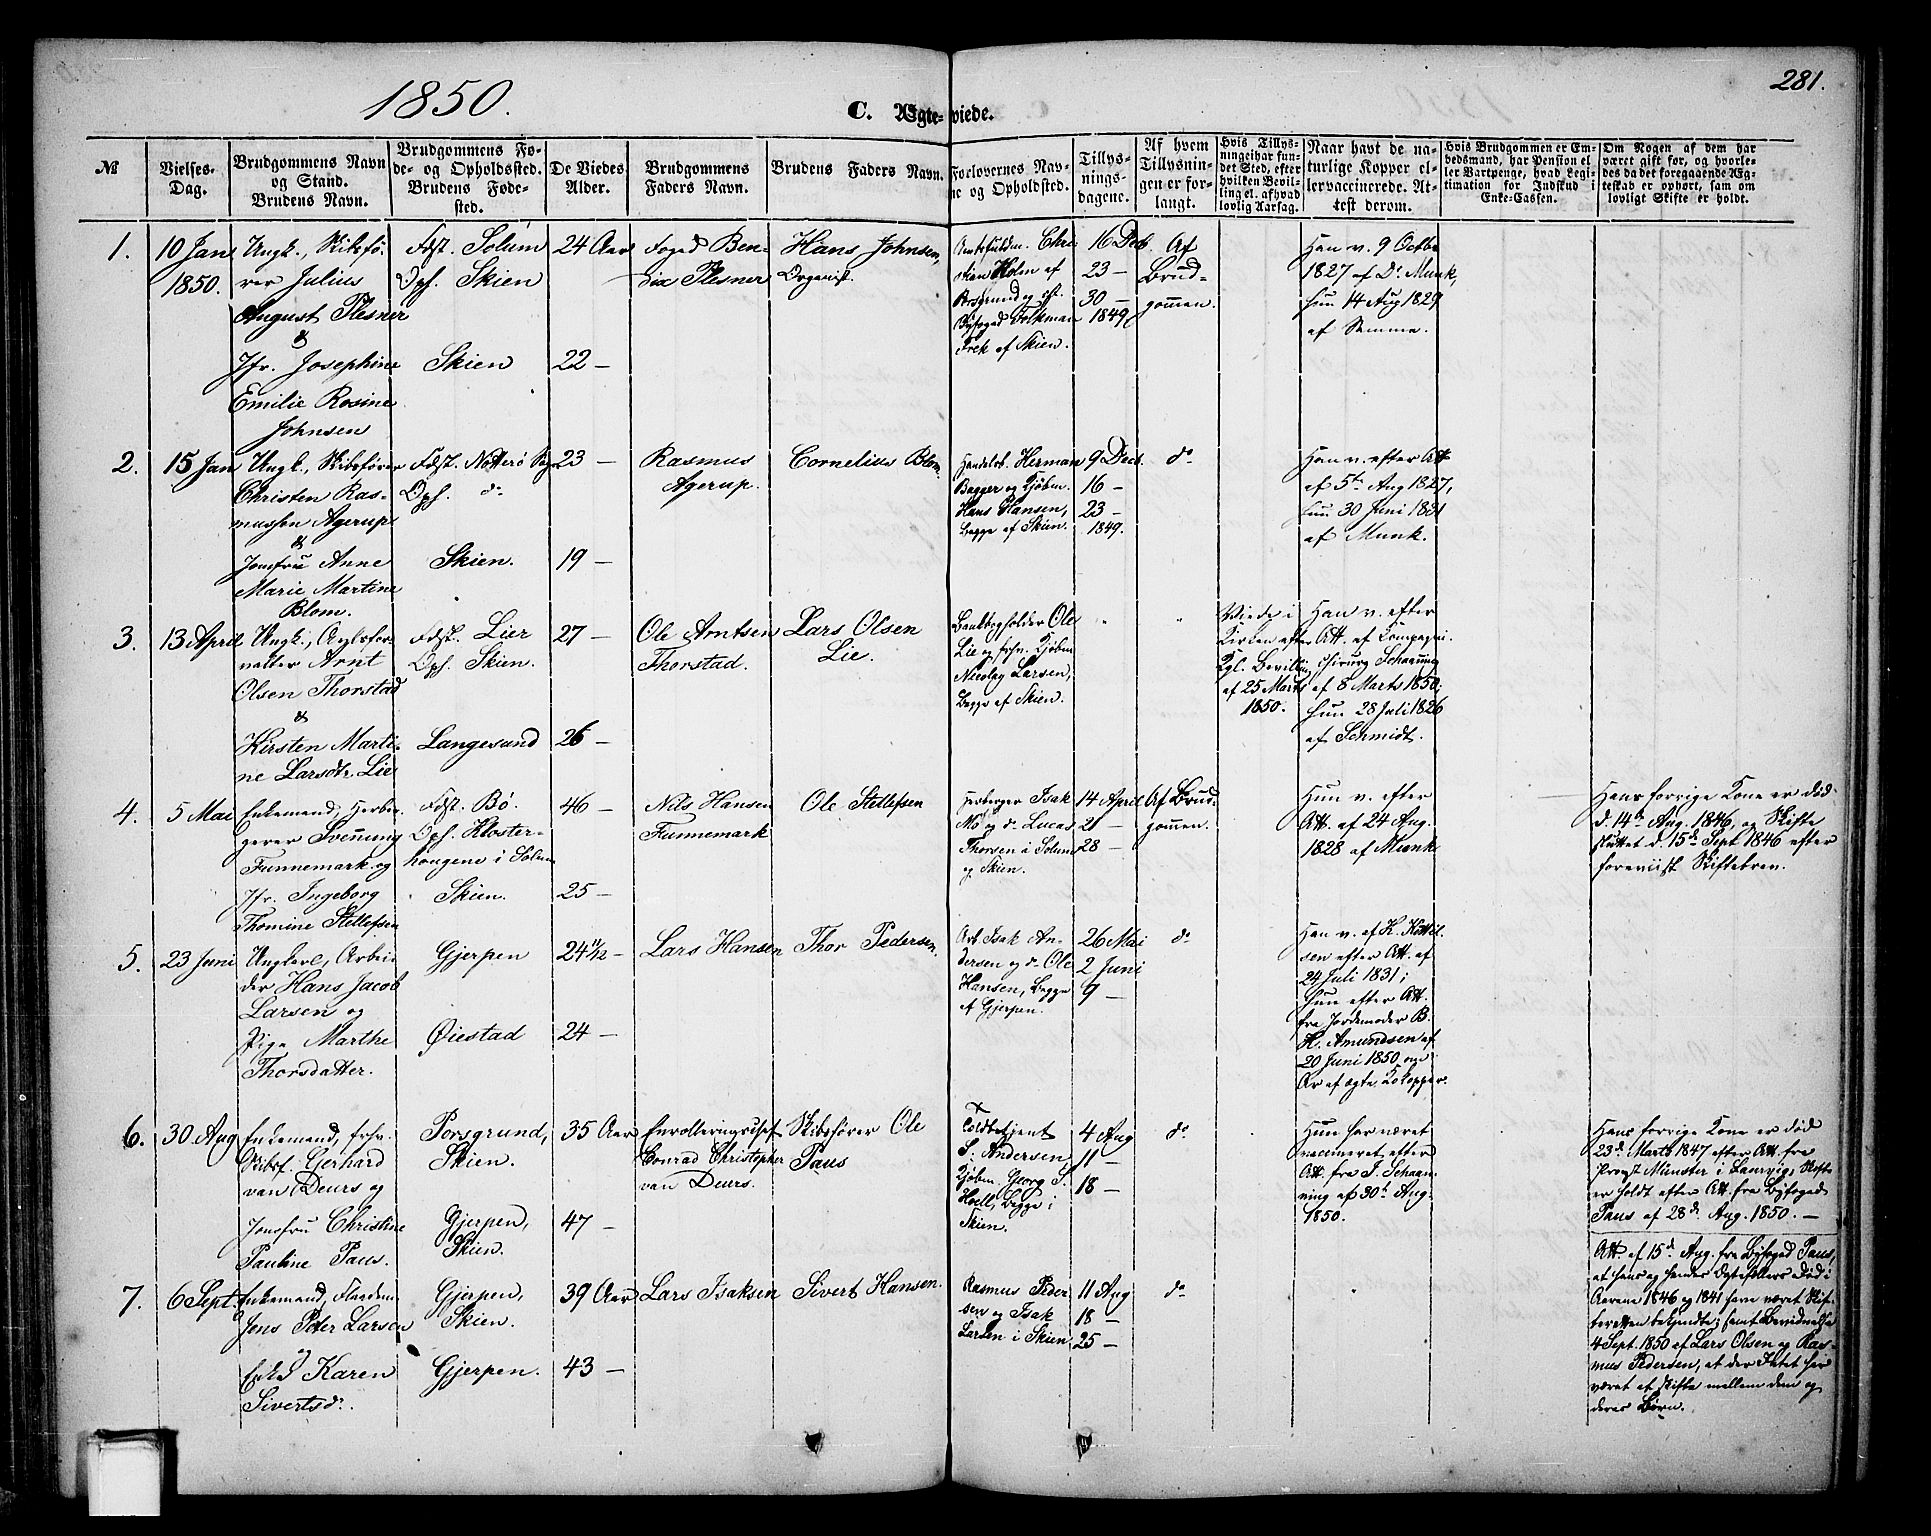 1850.
281.
C. Ægteviede.
№
Vielses-
Dag.
Brudgommens Navn
og Stand.
Brudens Navn.
Brudgommens Fø-
de- og Opholdssted.
Brudens Føde-
sted.
De Viedes
Alder.
Brudgommens
Faders Navn.
Brudens Faders Navn.
Forlovernes Nav-
ne og Opholdsted.
Tillys-
nings-
dagene.
Af hvem
Tillysnin-
gen er for-
langt.
Hvis Tillys-
ningei har fun-
det Sted, efter
hvilken Bevil-
ling el. afhvad
lovlig Aarsag.
Naar havt de na-
turlige Kopper el-
ler vaccinerede. At-
test derom.
Hvis Brudgommen er Em-
bedsmand, har Pension el-
ler Vartpenge, hvad Legi-
timation for Indskud i
Enke-Cassen.
Om Nogen af dem har
været gift før, og hvorle-
des da det foregaaende Æg-
teskab er ophørt, sam om
lovligt Skifte er holdt.
1.
10 Jan
1850.
Ungk., Skibsfø-
rer Julius
August Plesner
&
Jfr. Josephine
Emilie Rosine
Johnsen
Fdst. Solum
Oph. Skien
Skien
24 Aar
22 —
Foged Ben-
dix Plesner
Hans Johnsen,
Organist.
Amtsfuldm. Chri
stian Holm af
Porsgrund og cst.
Byfoged Folkman
Frek af Skien.
16 Decb.
23 —
30 —
1849
Af
Brud-
gommen.
Han v. 9 Octbr
1827 af Dr Munk,
hun 14 Aug 1829
af Samme.
2.
15 Jan
Ungk., Skibsfører
Christen Ras-
mussen Agerup
&
Jomfru Anne
Marie Martine
Blom.
Fdst. Nøtterø Sogn
Oph. do
Skien.
23 —
19 —
Rasmus
Agerup.
Cornelius Blom.
Handelsb. Herman
Bagger og Kjøbm.
Hans Hansen,
begge af Skien.
9 Decb.
16 —
23 —
1849.
do
Han v. efter Att.
af 5te Aug 1827,
hun 30 Juni 1831
af Munk.
3.
13 April
Ungk.,
Arnt
Olsen Thorstad
&
Kirsten Marti-
ne Larsdtr. Lie
Fdst. Lier
Oph. Skien.
Langesund
27 —
26 —
Ole Arntsen
Thorstad.
Lars Olsen
Lie.
Bankbogholder Ole
Lie og frhv. Kjøbm
Nicolay Larsen,
begge af Skien.
"
"
Viede i
Kirken efter
Kgl. Bevilling
af 25 Marts
1850.
Han v. efter
Att. af Compagni-
chirurg Schaanning
af 8 Marts 1850;
hun 28 Juli 1826
af Schmidt.
4.
5 Mai
Enkemand, Herber-
gerer Svenung
Funnemark og
Jfr. Ingeborg
Thomine Stellefsen
Fdst. Bø.
Oph. Kloster-
hougene i Solum
Skien.
46 —
25 —
Nils Hansen
Funnemark
Ole Stellefsen
Herberger Isak
Mo og do Lucas
Thorsen i Solum
og Skien.
14 April
21 —
28 —
Af Brud-
gommen.
Hun v. efter
Att. af 24 Aug.
1828 af Munk.
Hans forrige Kone er død
d. 14de Aug. 1846, og Skifte
sluttet d. 15de Sept 1846 efter
foreviist Skiftebrev.
5.
23 Juni
Ungkarl, Arbei-
der Hans Jacob
Larsen og
Pige Marthe
Thorsdatter.
Gjerpen
Øiestad
24 11/12 —
24 —
Lars Hansen
Thor Pedersen.
Arb. Isak An-
dersen og do Ole
Hansen, begge
af Gjerpen.
26 Mai
2 Juni
9 —
do
Han v. af K. Kittil-
sen efter Att. af
24 Juli 1831;
hun efter Att.
fra Jordemoder B.
H. Amundsen af
20 Juni 1850
Ar af ægte Kokopper.
6.
30 Aug
Enkemand, frhv.
Skibsf. Gerhard
van Deurs og
Jomfru Christine
Pauline Paus.
Porsgrund,
Skien.
Gjerpen,
Skien.
35 Aar
47 —
Enrolleringschef
Conrad Christopher
van Deurs.
Skibsfører Ole
Paus
Toldbetjent
S. Andersen
Kjøbm. Georg S.
Hoell, begge i
Skien.
4 Aug
11 —
18 —
do
Hun har været
vaccineret efter
Att. fra J. Schaan-
ning af 30te Aug.
1850.
Hans forrige Kone er død
23de Marts 1847 efter Att. fra
Provst Münster i Laurvig, Skifte
er holdt efter Att. fra Byfoged
Paus af 28de Aug. 1850. —
7.
6 Sept.
Enkemand,
Jens Peter Larsen
&
Enke Karen
Sivertsdr.
Gjerpen,
Skien.
Gjerpen.
39 Aar
43 —
Lars Isaksen
Sivert Hansen.
Rasmus Peder-
sen og Isak
Larsen i Skien
11 Aug
18 —
25 —
do
Att. af 15de Aug. fra Byfoged Paus,
at hans og hendes Ægtefællers Død i
Aarene 1846 og 1841 have været Skif-
teretten bekjendte; samt Bevidnelse
4 Sept. 1850 af Lars Olsen og Ras-
mus Pedersen, at der Intet har
været at skifte mellem dem og
deres Børn.